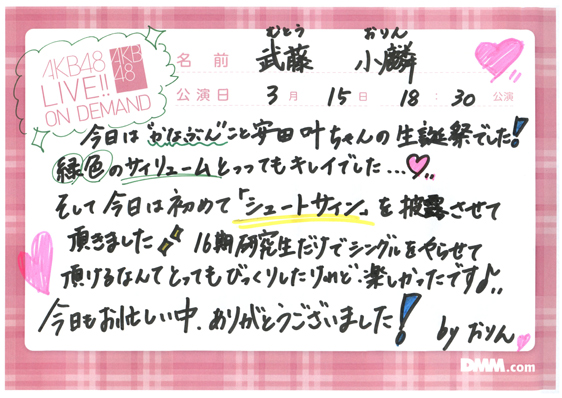 AKB48
LIVE!!
ON DEMAND
AKB
48
むとう おりん
名前 武藤 小麟
公演日 3月 15日 18:30 公演
今日は"かなぶん"こと安田叶ちゃんの生誕祭でした!
緑色のサイリュームとってもキレイでした...♡..
そして今日は初めて「シュートサイン」を披露させて
頂きました 16期研究生だけでシングルをやらせて
頂けるなんてとってもびっくりしたけれど、楽しかったです♪..
今日もお忙しい中、ありがとうございました!
by おりん
DMM.com